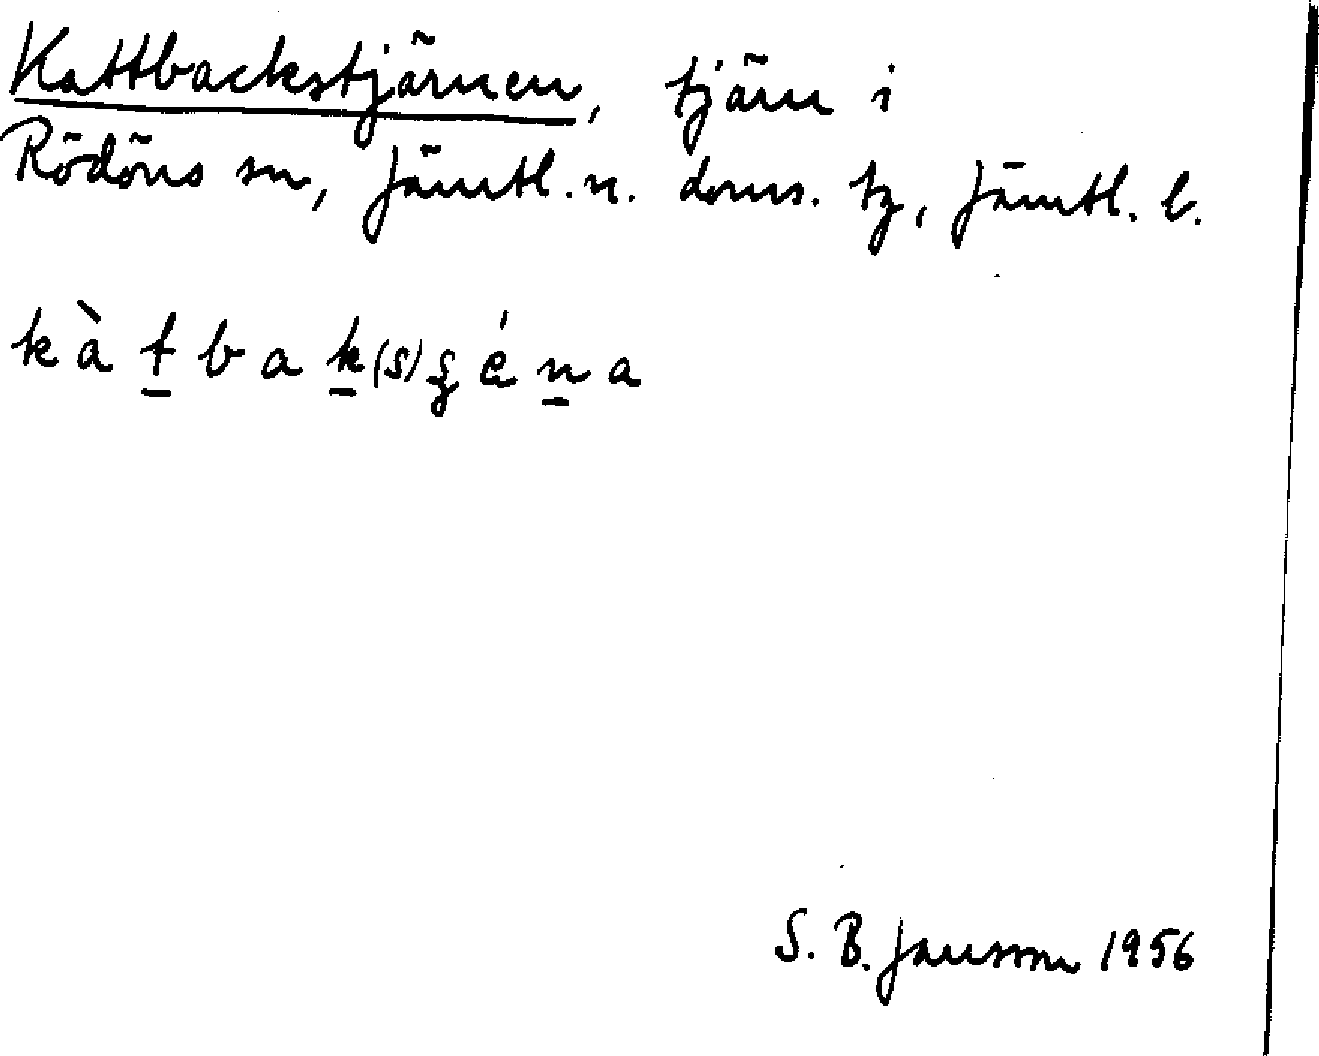 Kattbackstjärnen, tjärn i
Rödöns sn, Jämtl. n. doms. tg, Jämtl. l.
kàtbak(s)ʂéna
S. B. Jansson 1956